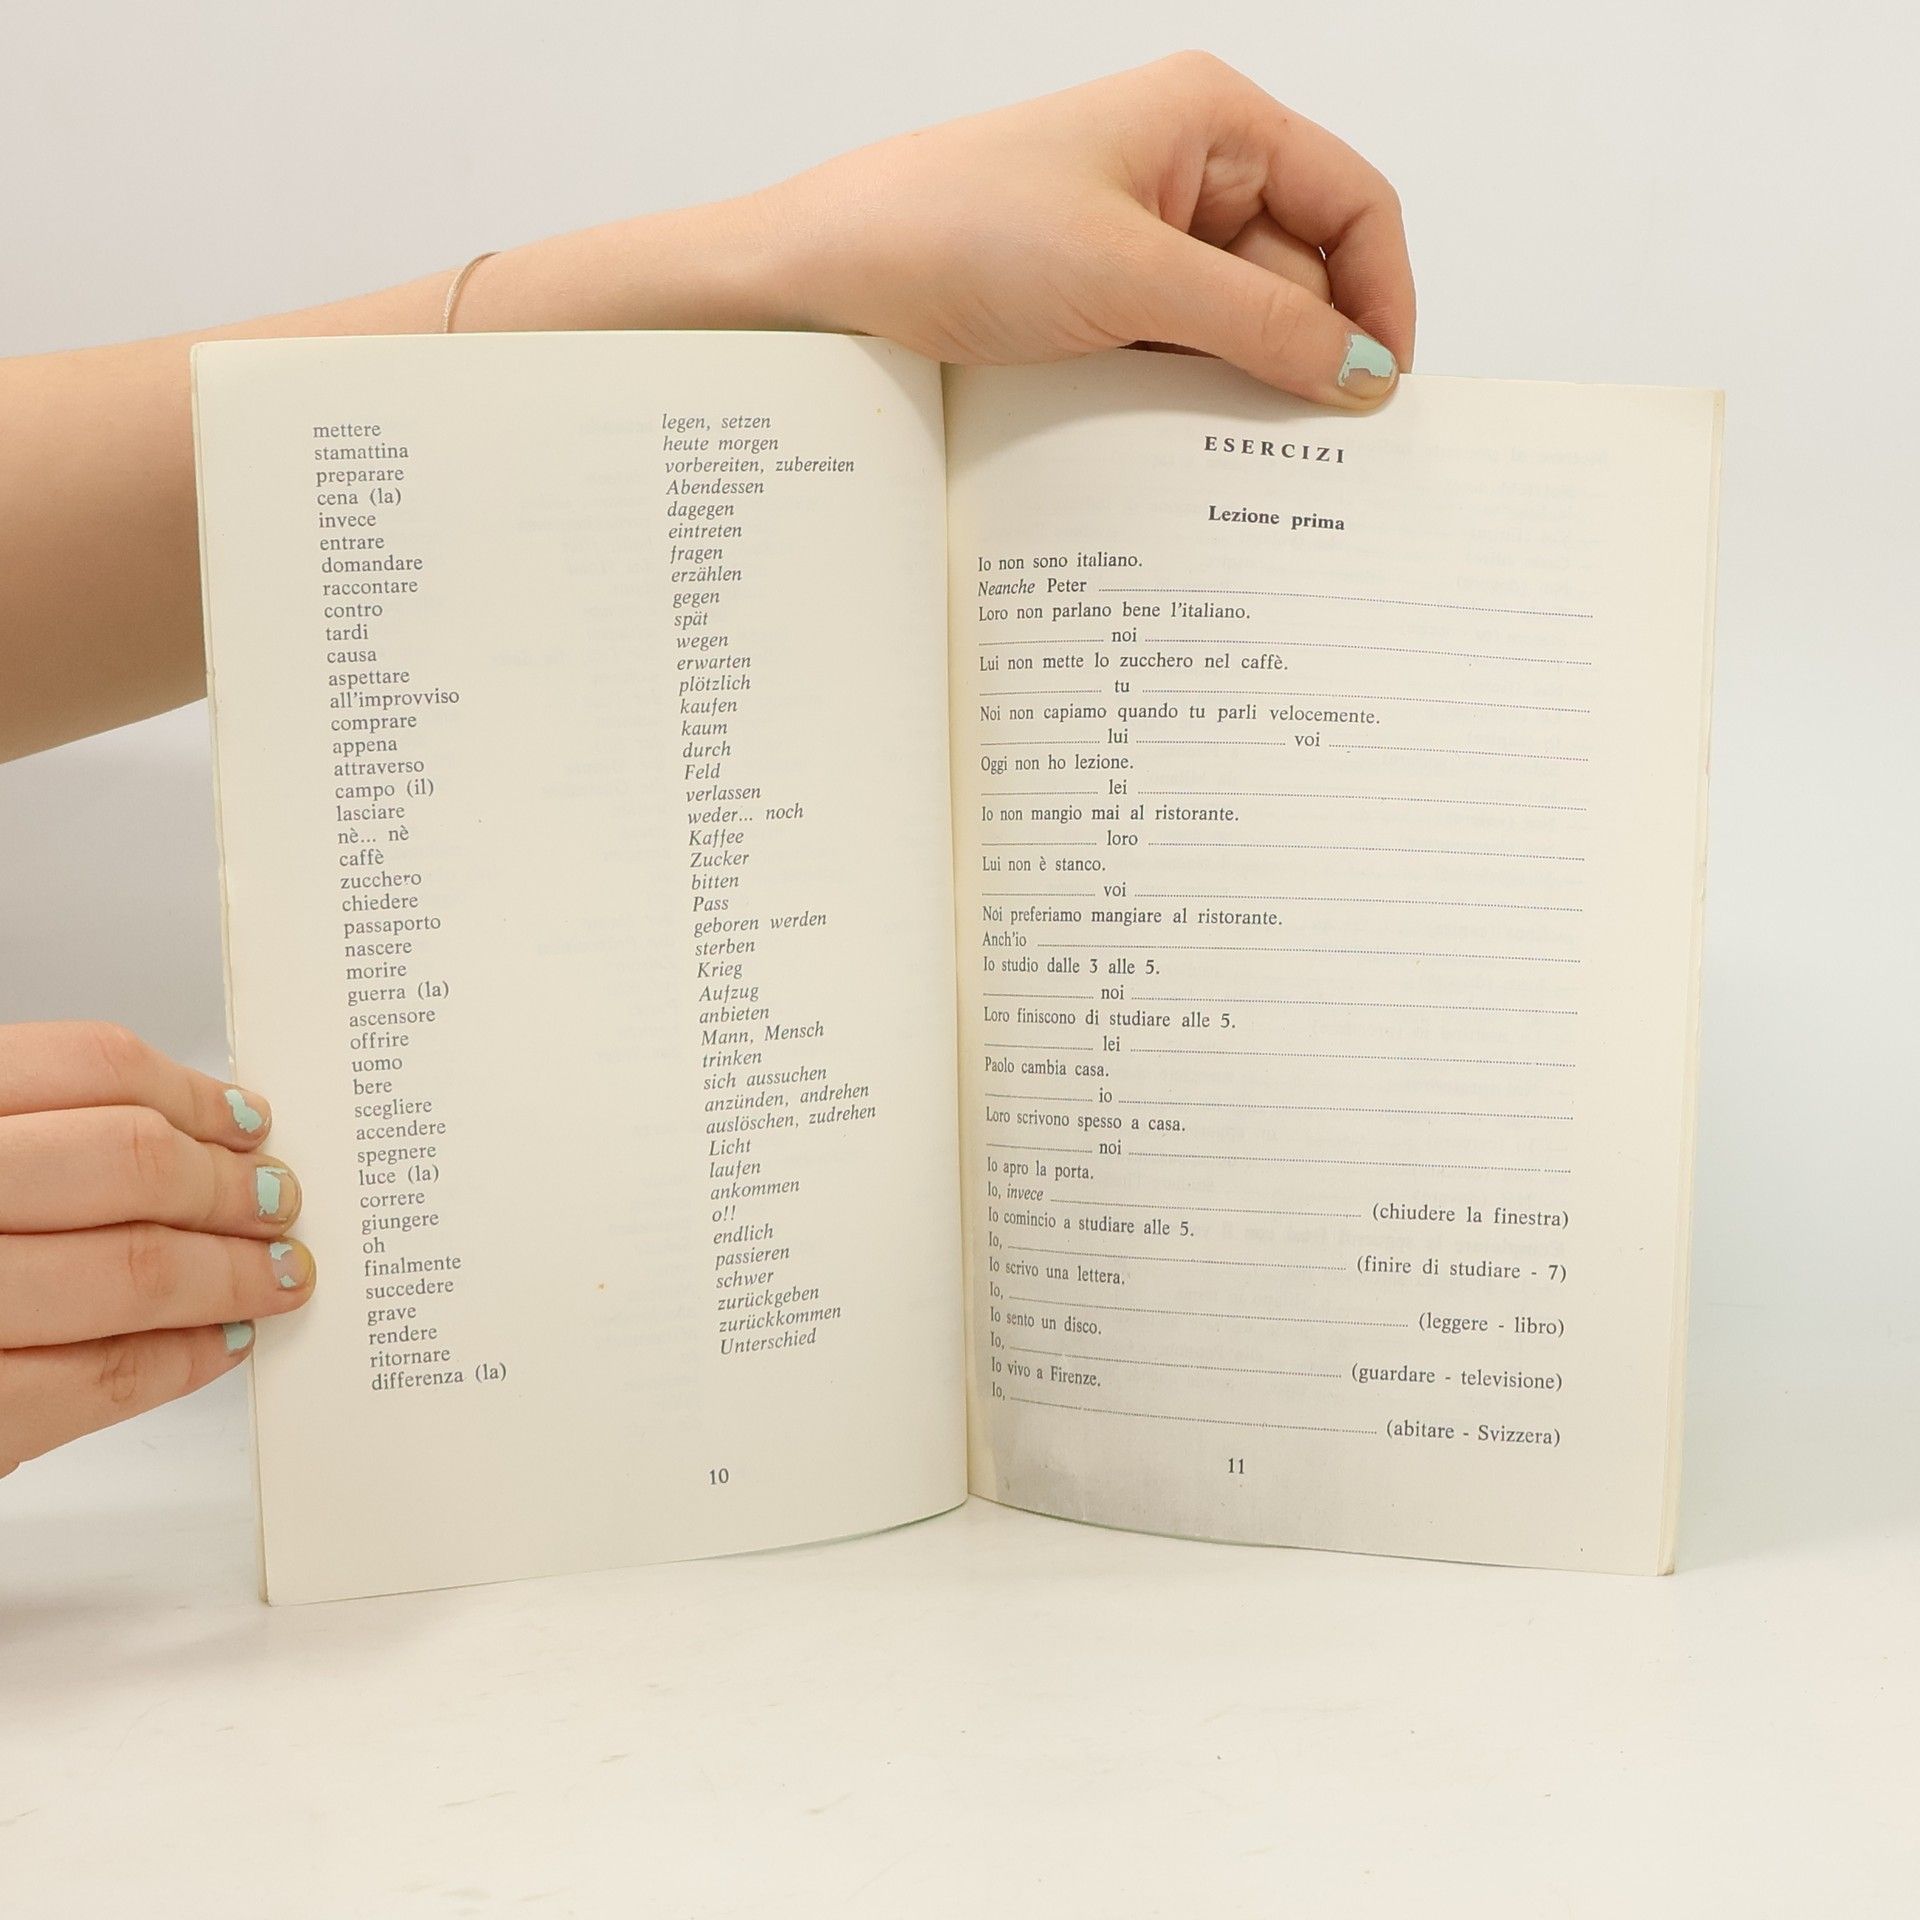 mettere legen, setzen
stamattina heute morgen
preparare vorbereiten, zubereiten
cena (la) Abendessen
invece dagegen
entrare eintreten
domandare fragen
raccontare erzählen
contro gegen
tardi spät
causa wegen
aspettare erwarten
all'improvviso plötzlich
comprare kaufen
appena kaum
attraverso durch
campo (il) Feld
lasciare verlassen
nè... nè weder... noch
caffè Kaffee
zucchero Zucker
chiedere bitten
passaporto Pass
nascere geboren werden
morire sterben
guerra (la) Krieg
ascensore Aufzug
offrire anbieten
uomo Mann, Mensch
bere trinken
scegliere sich aussuchen
accendere anzünden, andrehen
spegnere auslöschen, zudrehen
luce (la) Licht
correre laufen
giungere ankommen
oh o!!
finalmente endlich
succedere passieren
grave schwer
rendere zurückgeben
ritornare zurückkommen
differenza (la) Unterschied
10
ESERCIZI
Lezione prima
Io non sono italiano.
Neanche Peter ........................
Loro non parlano bene l'italiano.
............ noi ........................
Lui non mette lo zucchero nel caffè.
............ tu ........................
Noi non capiamo quando tu parli velocemente.
............ lui ............ voi ............
Oggi non ho lezione.
............ lei ........................
Io non mangio mai al ristorante.
............ loro ........................
Lui non è stanco.
............ voi ........................
Noi preferiamo mangiare al ristorante.
Anch'io ........................
Io studio dalle 3 alle 5.
............ noi ........................
Loro finiscono di studiare alle 5.
............ lei ........................
Paolo cambia casa.
............ io ........................
Loro scrivono spesso a casa.
............ noi ........................
Io apro la porta.
Io, invece ............ (chiudere la finestra)
Io comincio a studiare alle 5.
Io, ............ (finire di studiare - 7)
Io scrivo una lettera.
Io, ............ (leggere - libro)
Io sento un disco.
Io, ............ (guardare - televisione)
Io vivo a Firenze.
Io, ............ (abitare - Svizzera)
11